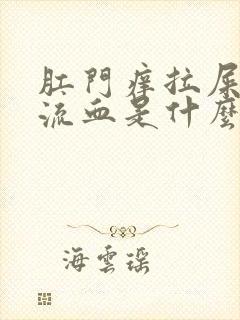 肛門癢拉屎
流血是什麼
海雲謠